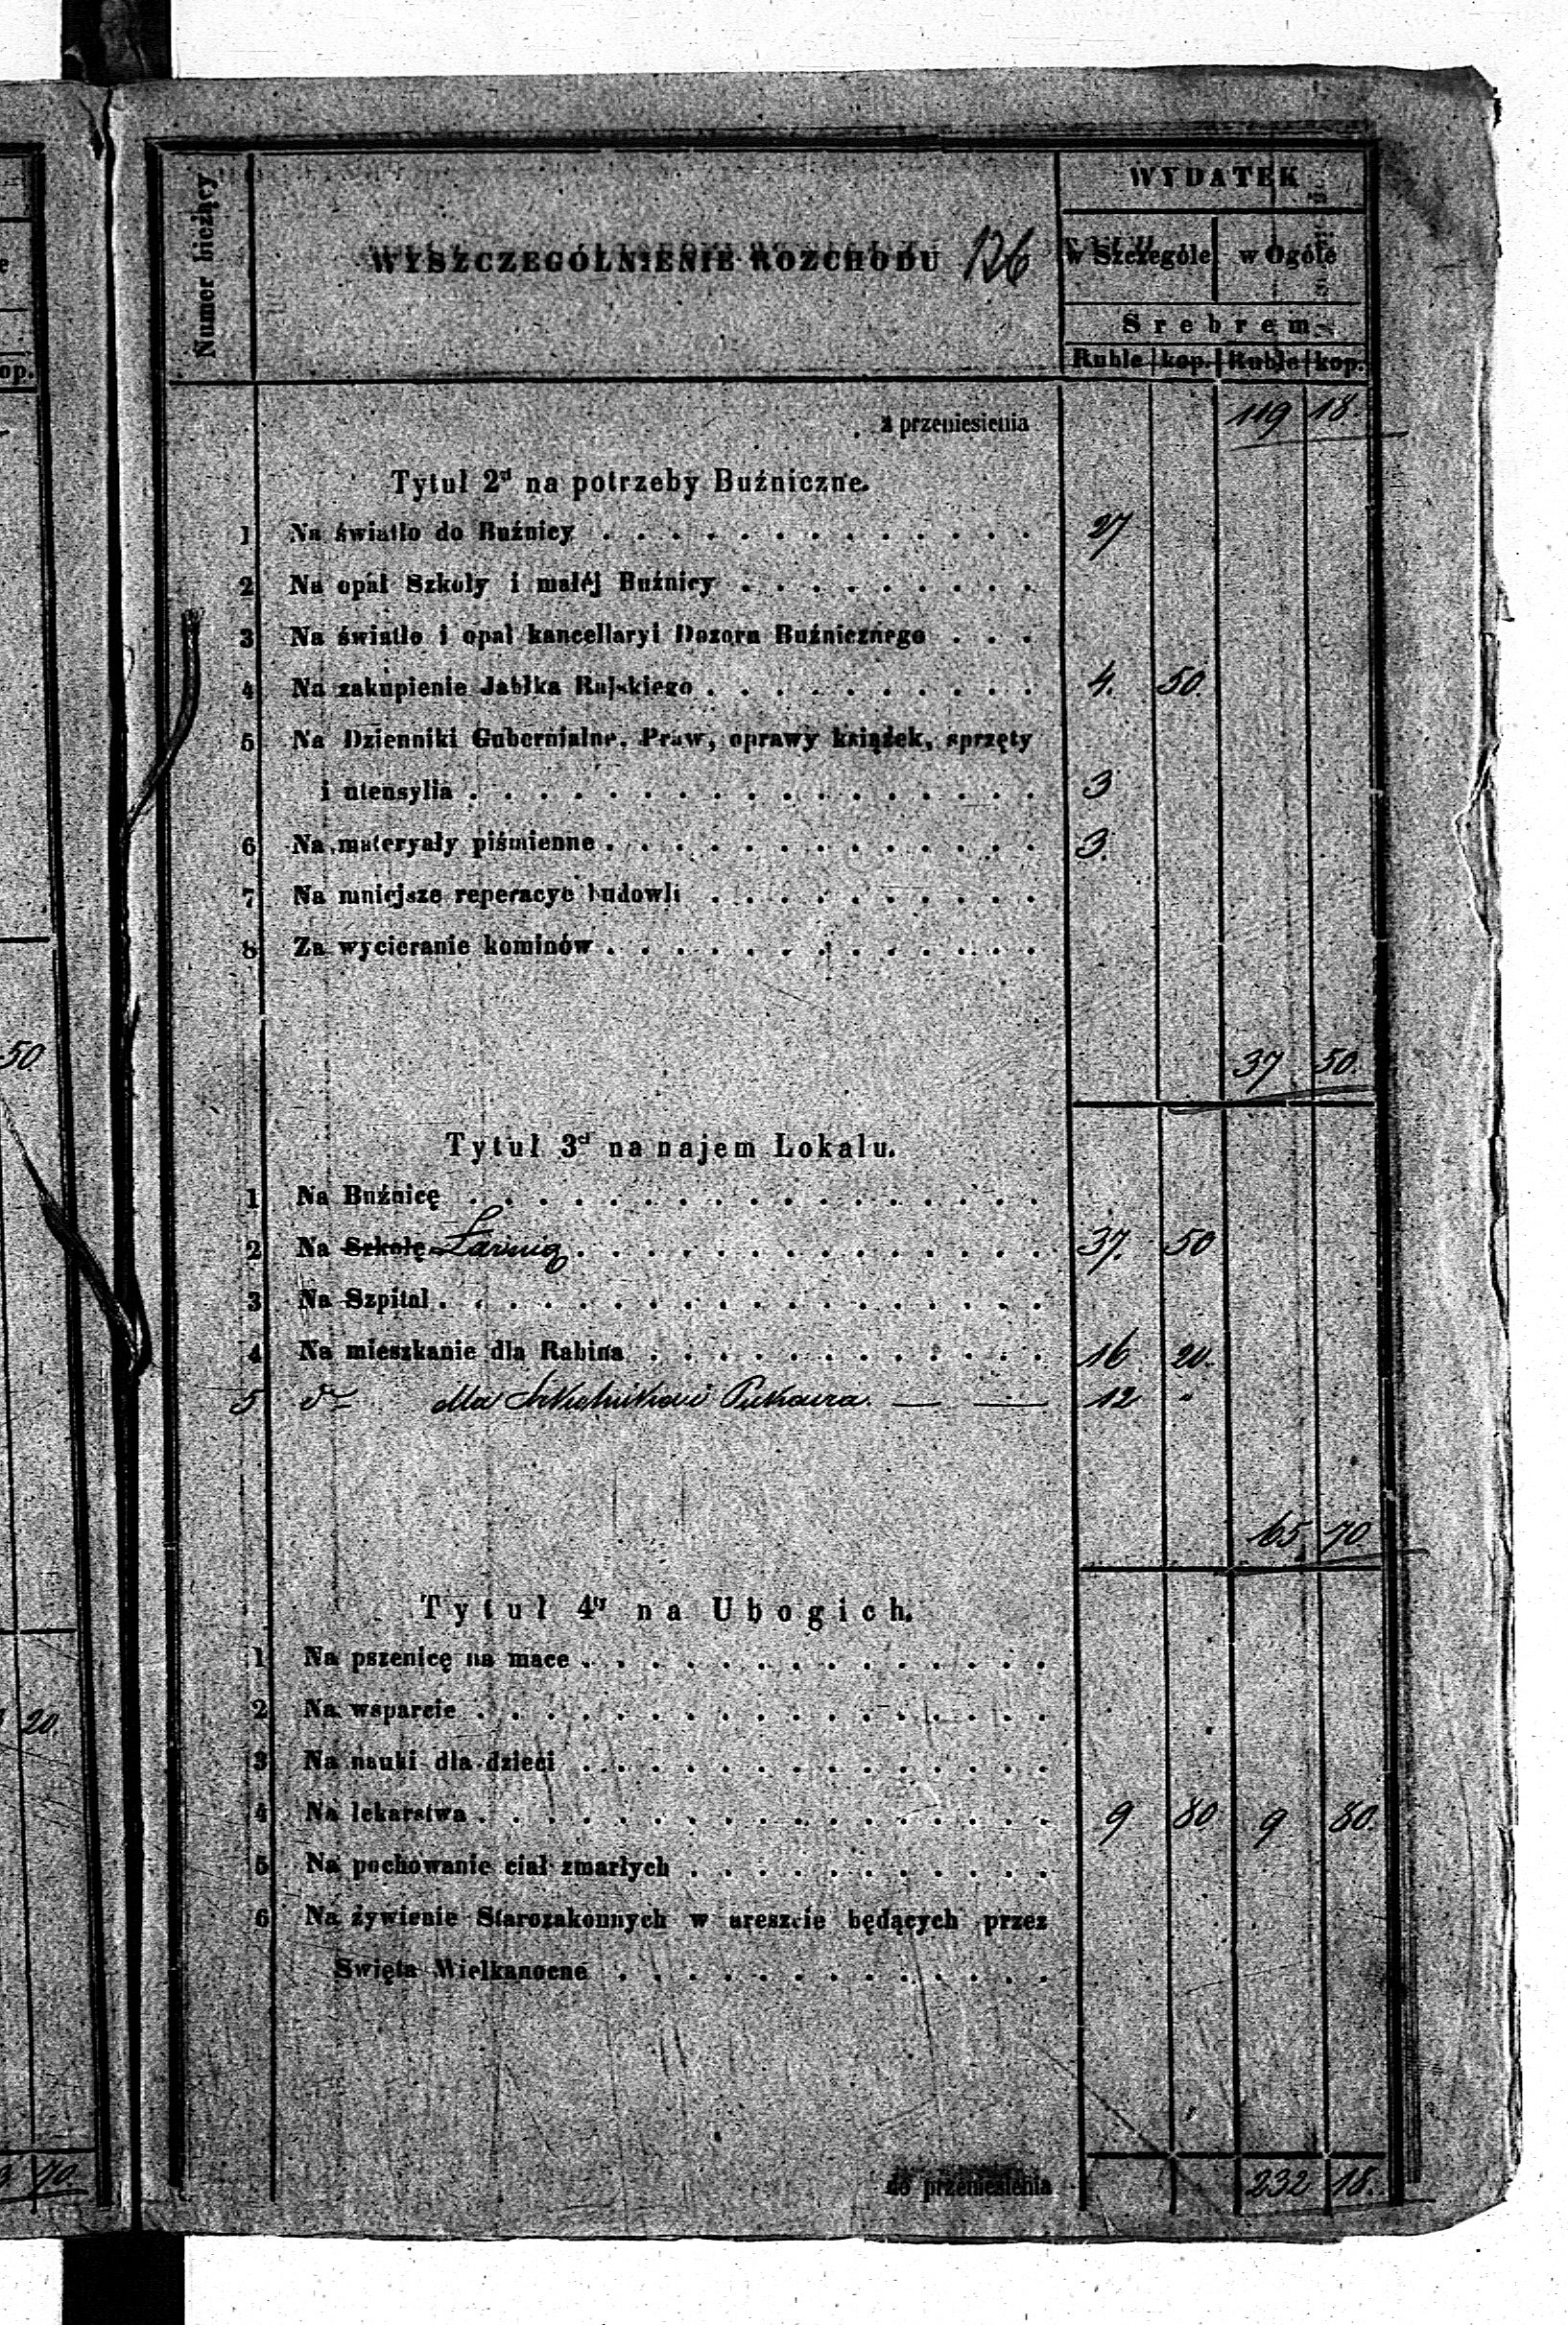 WYDATEK
Numer bieżący
WYSZCZEGÓLNIENIE ROZCHODU 126
w Szczególe w Ogóle
Srebrem
Ruble kop. Ruble kop.
z przeniesienia 119 18.
Tytuł 2d na potrzeby Buźniczne.
1 Na światło do Buźnicy . . . . . . . . . . . . . 27
2 Na opał Szkoły i małéj Buźnicy . . . . . . . . .
3 Na światło i opał kancellaryi Dozoru Buźnicznego . . .
4 Na zakupienie Jabłka Rajskiego . . . . . . . . . . 4. 50
5 Na Dzienniki Gubernialne, Praw, oprawy książek, sprzęty
i utensylia . . . . . . . . . . . . . . . . . 3
6 Na materyały piśmienne . . . . . . . . . . . . . 3.
7 Na mniejsze reperacye budowli . . . . . . . . . .
8 Za wycieranie kominów . . . . . . . . . . . . .
37 50.
Tytuł 3d na najem Lokalu.
1 Na Buźnicę . . . . . . . . . . . . . . . . .
2 Na Szkołę Łaźnię . . . . . . . . . . . . . . 37. 50
3 Na Szpital . . . . . . . . . . . . . . . . . .
4 Na mieszkanie dla Rabina . . . . . . . . . . . . 16 20.
5 do dla Szkolnika — — 12 "
65 70
Tytuł 4ty na Ubogich.
1 Na pszenicę na mace . . . . . . . . . . . . . .
2 Na wsparcie . . . . . . . . . . . . . . . . .
3 Na nauki dla dzieci . . . . . . . . . . . . . .
4 Na lekarstwa . . . . . . . . . . . . . . . . . 9 80 9 80.
5 Na pochowanie ciał zmarłych . . . . . . . . . . .
6 Na żywienie Starozakonnych w areszcie będących przez
Swięta Wielkanocne . . . . . . . . . . . . .
do przeniesienia 232 18.
e
op.
50
20.
70